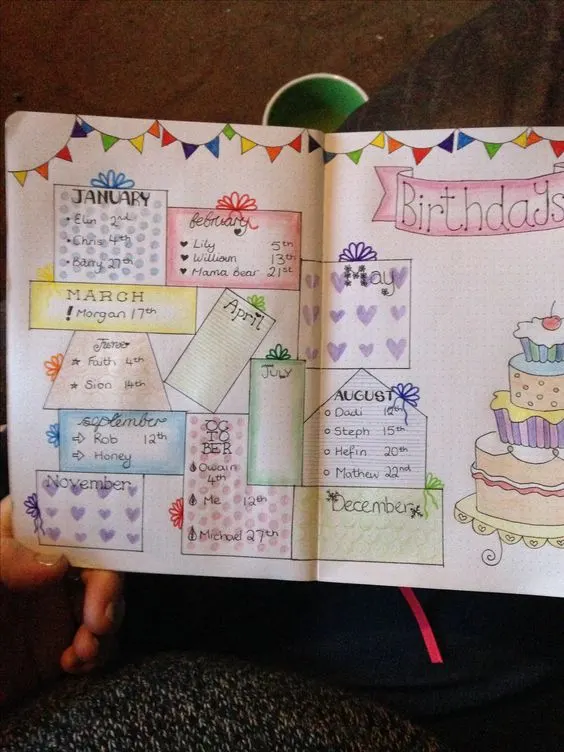 Birthdays
JANUARY
• Elin 2nd
• Chris 4th
• Barry 27th
february
♥ Lily 5th
♥ William 13th
♥ Mama Bear 21st
MARCH
! Morgan 17th
April
May
June
☆ Faith 4th
☆ Sion 14th
JULY
AUGUST
○ Dadi
○ Steph 15th
○ Hefin 20th
○ Mathew 22nd
september
⇨ Rob 12th
⇨ Honey
OC
TO
BER
Owain
4th
Me 12th
Michael 27th
November
December